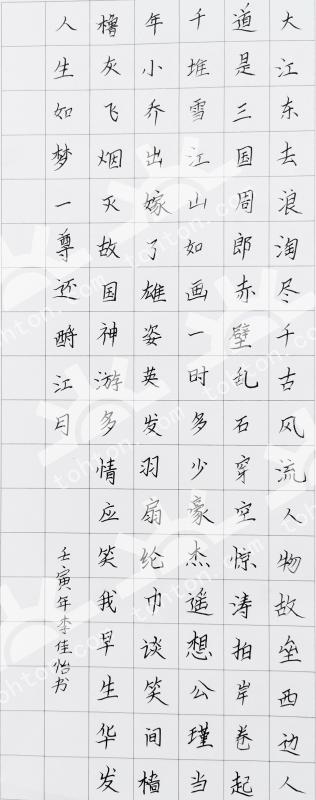 大江东去浪淘尽千古风流人物故垒西边人
道是三国周郎赤壁乱石穿空惊涛拍岸卷起
千堆雪江山如画一时多少豪杰遥想公瑾当
年小乔出嫁了雄姿英发羽扇纶巾谈笑间樯
橹灰飞烟灭故国神游多情应笑我早生华发
人生如梦一尊还酹江月
壬寅年李佳怡书
tohton.com